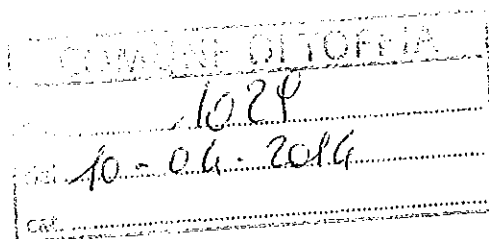 COMUNE DI TOFFIA
1024
del 10-04-2014
cat.